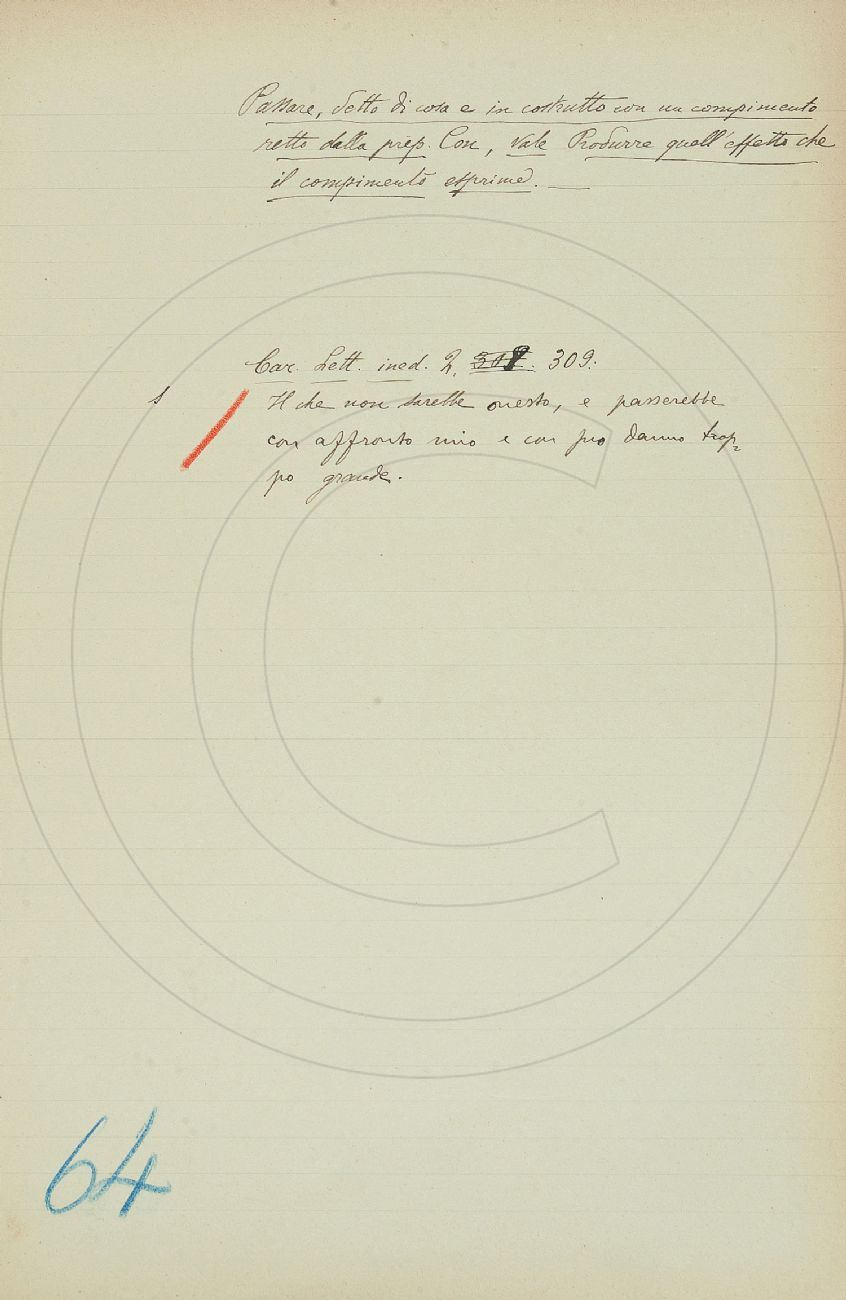 Passare, detto di cosa e in costrutto con un compimento
retto dalla prep. Con, vale Produrre quell'effetto che
il compimento esprime. —
Car. Lett. ined. 2. 309:
s
Il che non sarebbe onesto, e passerebbe
con affronto mio e con suo danno trop=
po grande.
64